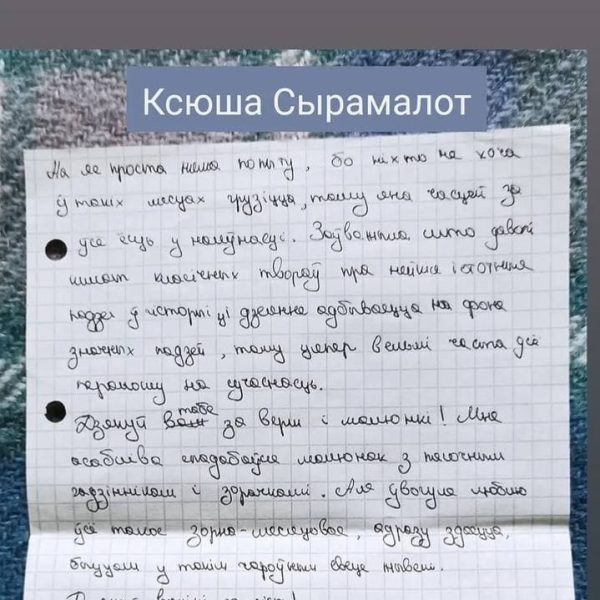 Ксюша Сырамалот
На яе проста няма попыту, бо ніхто не хоча
ў такіх месцах грузіцца, таму яна часцей за
ўсё ёсць у наяўнасці. Заўважыла, што даволі
шмат класічных твораў пра нейкія істотныя
падзеі ў гісторыі ці дзеянне адбываецца на фоне
значных падзей, таму цяпер вельмі часта ўсё
пераношу на сучаснасць.
Дзякуй вам табе за верш і малюнкі! Мне
асабліва спадабаўся малюнак з пясочным
гадзіннікам і зорачкамі. Але ўвогуле люблю
ўсё такое зорна-месяцовае, адразу здаецца,
быццам у такім чароўным свеце жывеш.